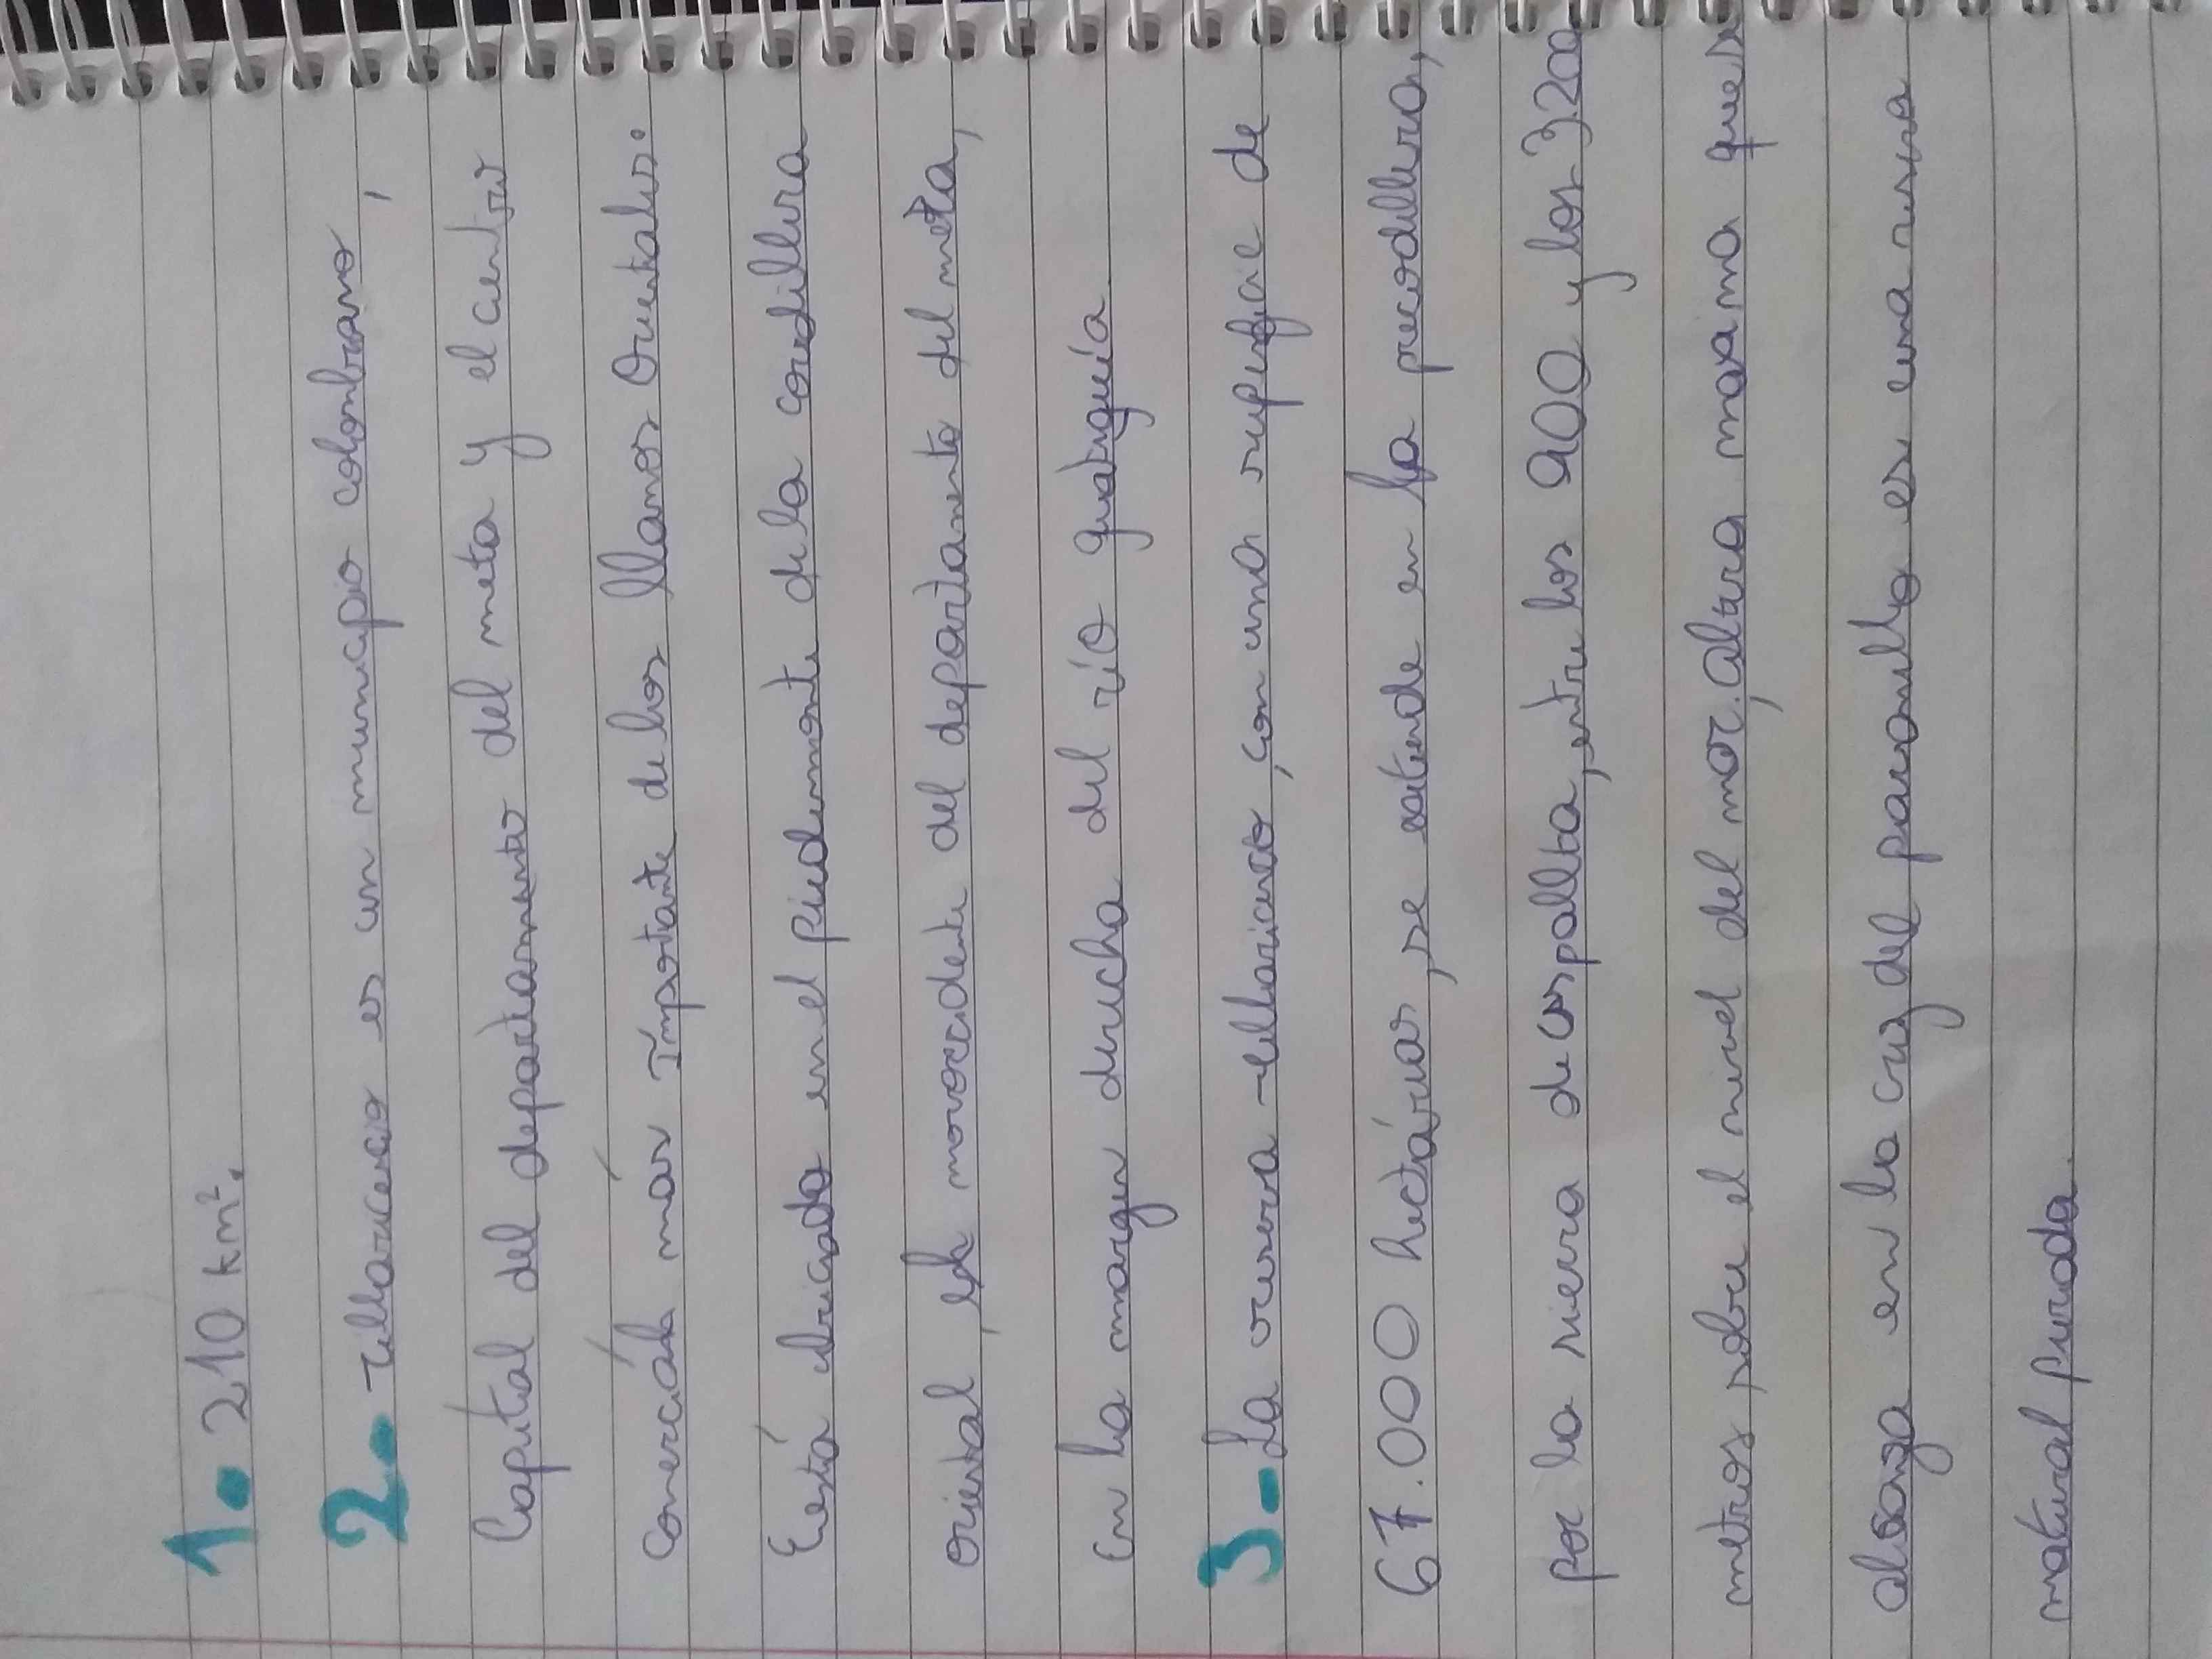 1. 210 km².
2. Villavicencio es un municipio colombiano,
Capital del departamento del meta y el centro
Comercial más Importante de los llanos Orientales.
Está ubicado en el piedemonte de la cordillera
Oriental, al noroccidente del departamento del meta,
En la margen derecha del río guatiquía
3. La reserva -villavicencio, con una superficie de
67.000 hectáreas, se extiende en la precordillera,
por la sierra de uspallata, entre los 900 y los 3200
metros sobre el nivel del mar, altura maxima que se
alcanza en la cruz del paramillo es una rersa
natural privada.